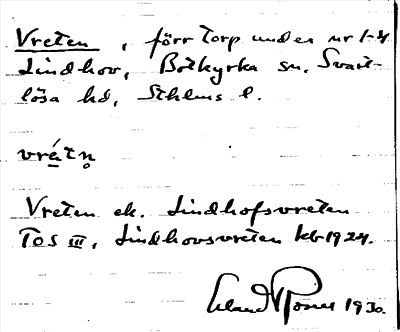 Vreten, förr torp under nr 1-4
Lindhov, Botkyrka sn. Svart-
lösa hd, Sthlms l.
vrétn̥
Vreten ek. Lindhofsvreten
TOS III, Lindhovsvreten kb 1924.
Erland Rosell 1930.